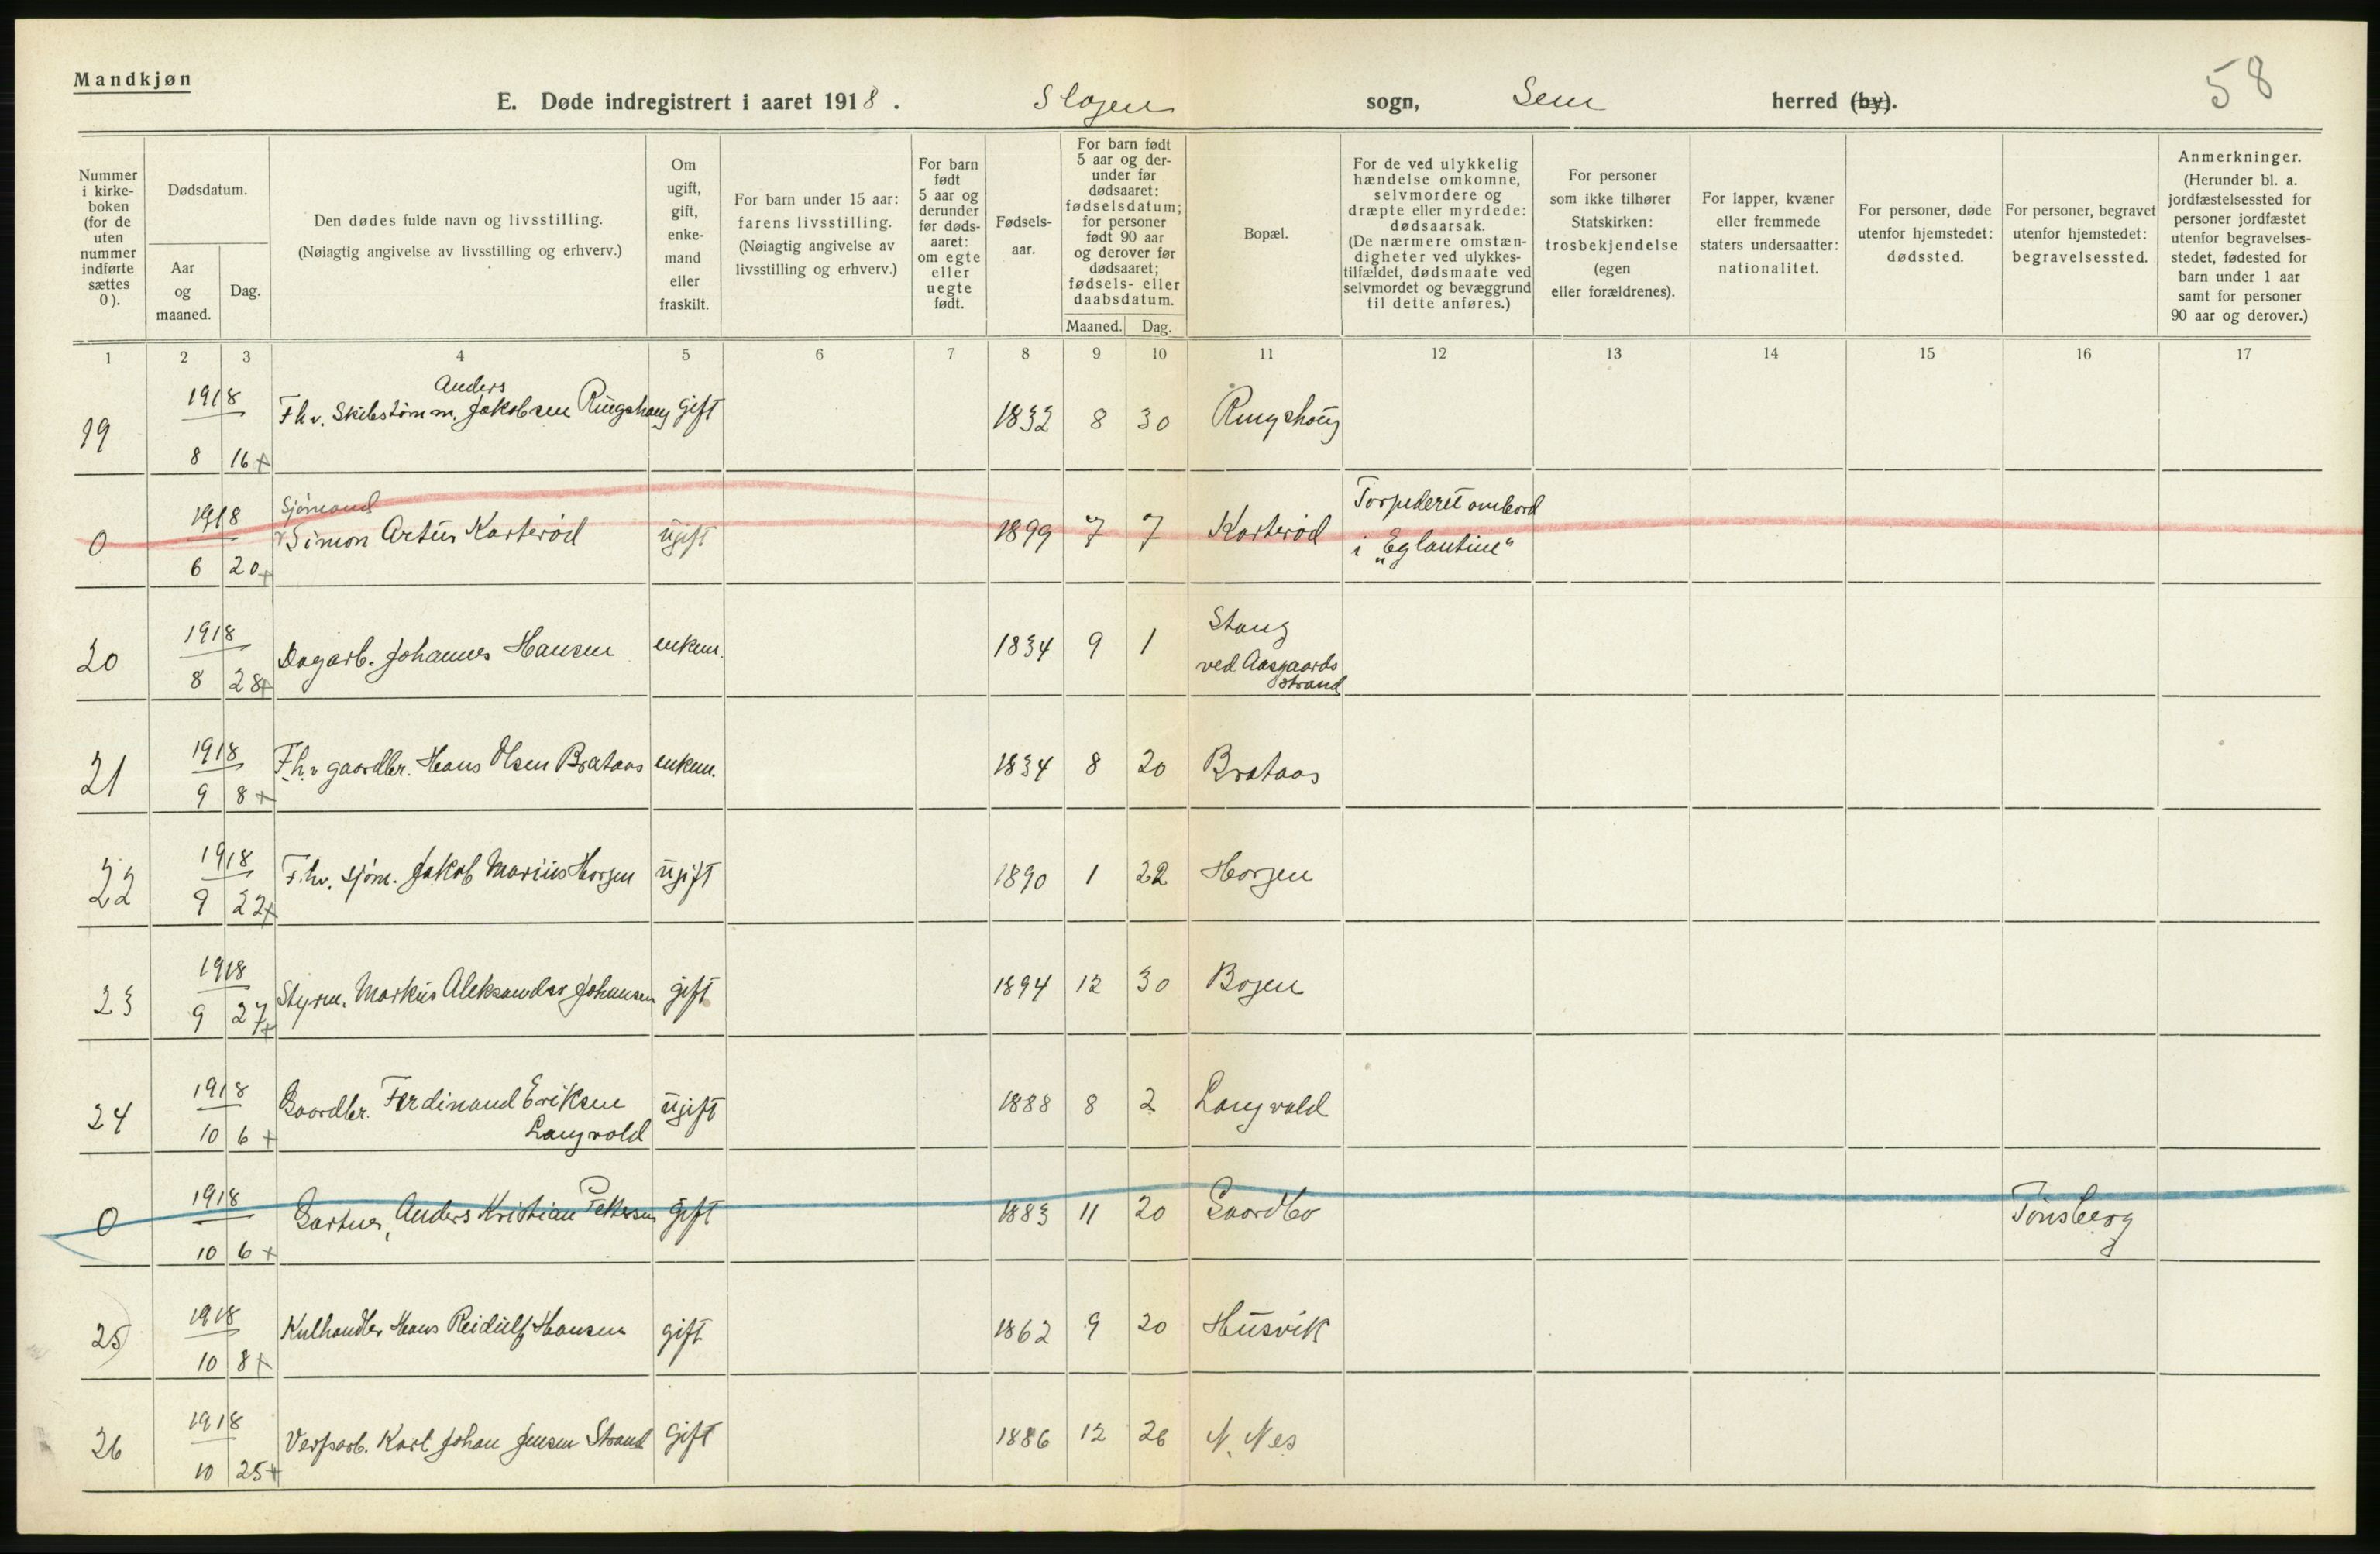 Mandkjøn
58
E. Døde indregistrert i aaret 1918. Slagen sogn, Sem herred (by).
Nummer i kirkeboken (for de uten nummer indførte sættes 0).
Dødsdatum.
Aar og maaned.
Dag.
Den dødes fulde navn og livsstilling.
(Nøiagtig angivelse av livsstilling og erhverv.)
Om ugift, gift, enkemand eller fraskilt.
For barn under 15 aar: farens livsstilling. (Nøiagtig angivelse av livsstilling og erhverv.)
For barn født 5 aar og derunder før dødsaaret: om egte eller uegte født.
Fødselsaar.
For barn født 5 aar og derunder før dødsaaret: fødselsdatum; for personer født 90 aar og derover før dødsaaret; fødsels- eller daabsdatum.
Maaned. Dag.
Bopæl.
For de ved ulykkelig hændelse omkomne, selvmordere og dræpte eller myrdede: dødsaarsak. (De nærmere omstændigheter ved ulykkestilfældet, dødsmaate ved selvmordet og bevæggrund til dette anføres.)
For personer som ikke tilhører Statskirken: trosbekjendelse (egen eller forældrenes).
For lapper, kvæner eller fremmede staters undersaatter: nationalitet.
For personer, døde utenfor hjemstedet: dødssted.
For personer, begravet utenfor hjemstedet: begravelsessted.
Anmerkninger. (Herunder bl. a. jordfæstelsessted for personer jordfæstet utenfor begravelsesstedet, fødested for barn under 1 aar samt for personer 90 aar og derover.)
1 2 3 4 5 6 7 8 9 10 11 12 13 14 15 16 17
19 1918 8 16+ F.h.v. Skibstømm. Anders Jakobsen Ringshaug gift 1832 8 30 Ringshoug
0 1918 6 20+ Sjømand Simon Artur Karterød ugift 1899 7 7 Karterød Torpederet ombord
i „Eglantine“
20 1918 8 28+ Dagarb. Johannes Hansen enkem. 1834 9 1 Stang
ved Aasgaards
strand
21 1918 9 8+ F.h.v gaardbr. Hans Olsen Brataas enkem. 1834 8 20 Brataas
22 1918 9 22+ F.hv. sjøm. Jakob Marius Horgen ugift 1890 1 22 Horgen
23 1918 9 27+ Styrm. Markus Aleksander Johansen gift 1894 12 30 Bogen
24 1918 10 6+ Gaardbr. Ferdinand Eriksen
Langvold ugift 1888 8 2 Langvold
0 1918 10 6+ Gartner, Anders Kristian Pettersen gift 1883 11 20 Gaardbo Tønsberg
25 1918 10 8+ Kulhandler Hans Reidulf Hansen gift 1862 9 20 Husvik
26 1918 10 25+ Verfsarb. Karl Johan Jensen Strand gift 1886 12 26 N. Nes